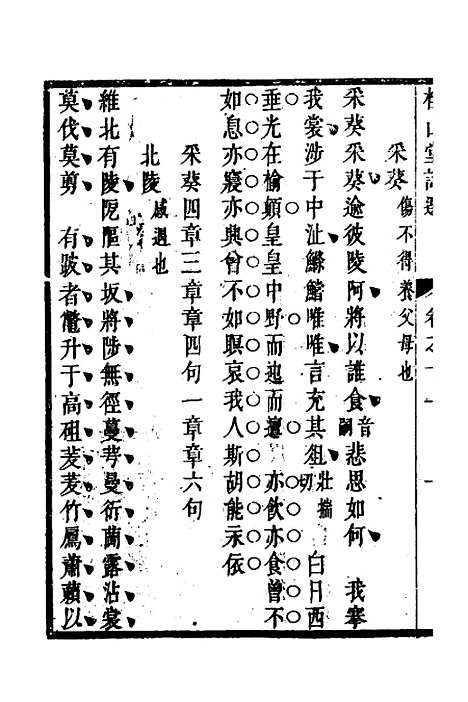 采葵傷不得養父母也
采葵采葵逾彼陵阿將以誰食音嗣悲思如何 我搴
我裳涉于中沚鰷鱨唯唯言充其俎壯揣切 白日西
垂光在榆顛皇皇中野而迤而邅 亦飲亦食曾不
如息亦寢亦興曾不如瞑哀我人斯胡能永依
采葵四章三章章四句一章章六句
北陵感遇也
維北有陵阢隉其坂將陟無徑蔓芳曼衍蘭露沾裳
莫伐莫剪 有跛者鼈升于高砠菱菱竹鴈蕭蕭以